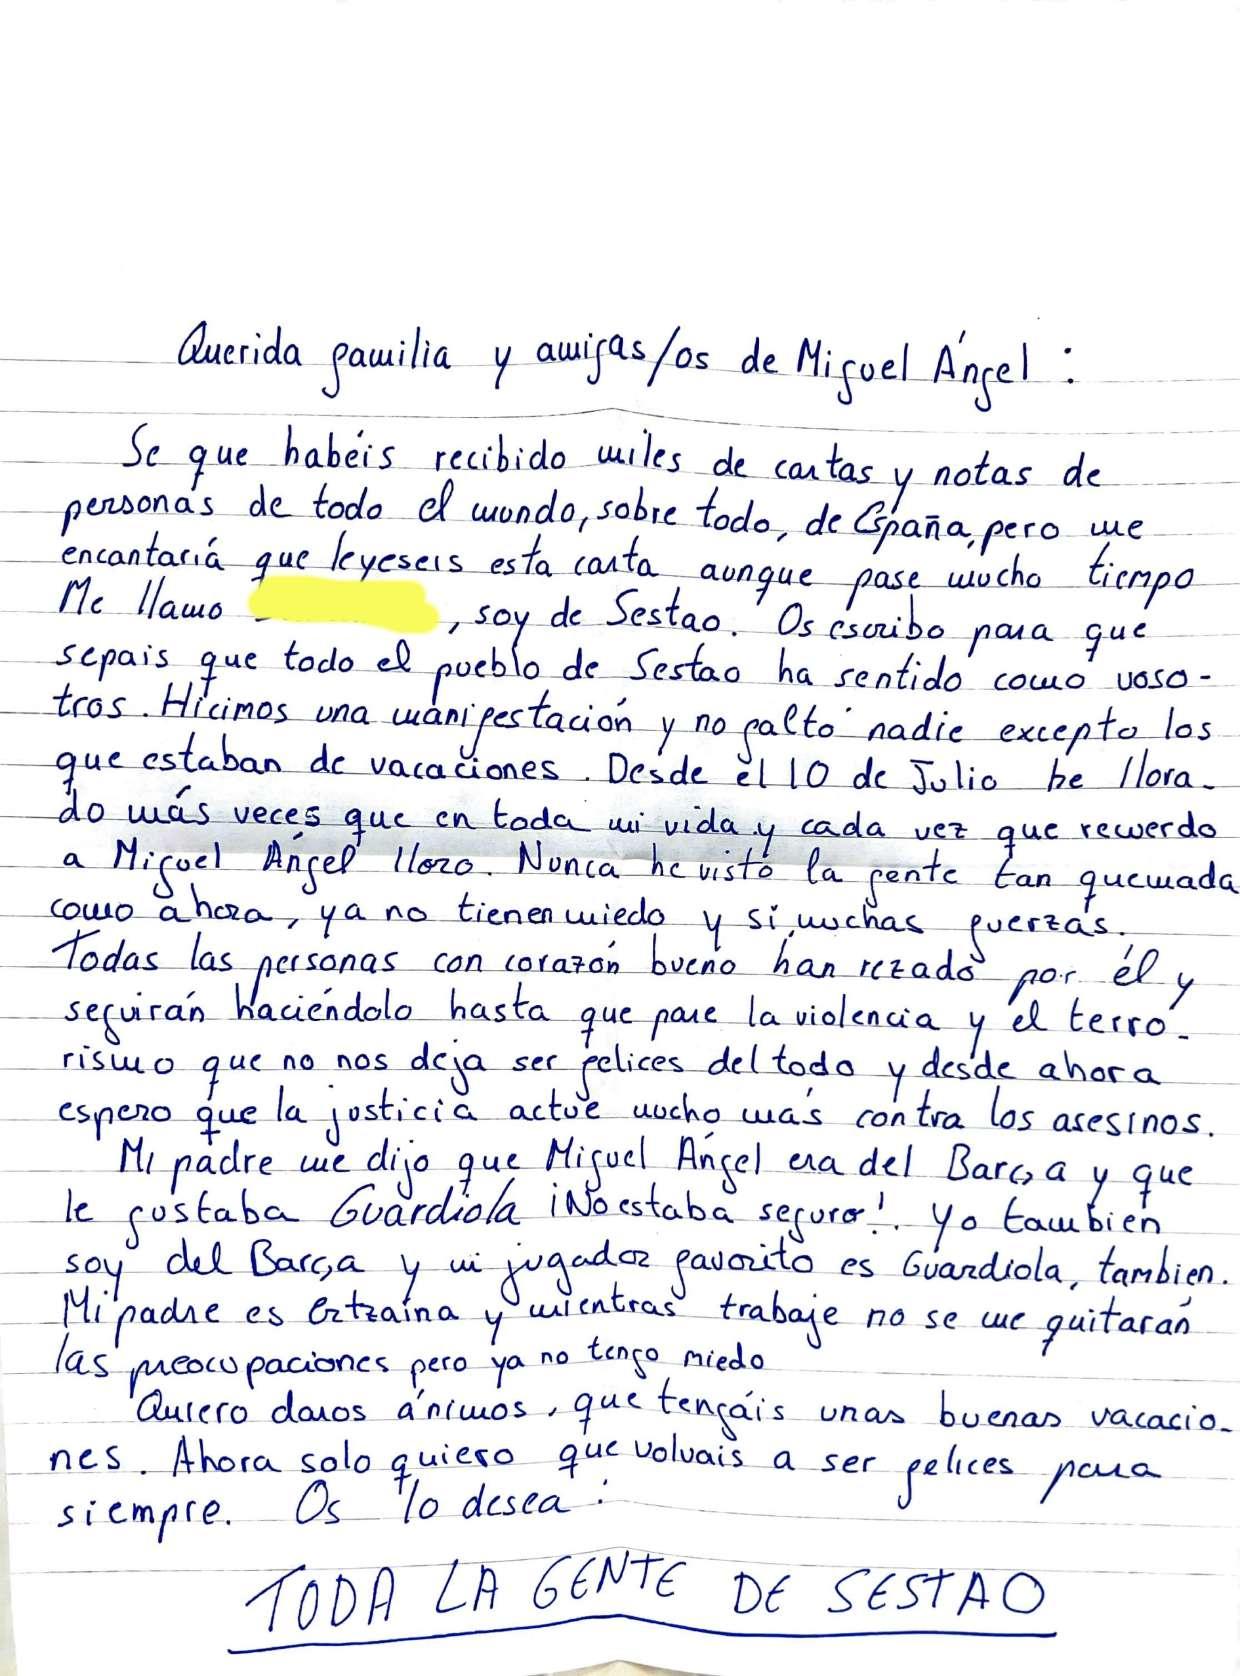 Querida familia y amigas/os de Miguel Ángel:
Se que habéis recibido miles de cartas y notas de
personas de todo el mundo, sobre todo, de España, pero me
encantaría que leyeseis esta carta aunque pase mucho tiempo
Me llamo , soy de Sestao. Os escribo para que
sepais que todo el pueblo de Sestao ha sentido como voso-
tros. Hicimos una manifestación y no faltó nadie excepto los
que estaban de vacaciones. Desde el 10 de Julio he llora-
do más veces que en toda mi vida y cada vez que recuerdo
a Miguel Ángel lloro. Nunca he visto la gente tan quemada
como ahora, ya no tienen miedo y si, muchas fuerzas.
Todas las personas con corazón bueno han rezado por él y
seguirán haciéndolo hasta que pare la violencia y el terro-
rismo que no nos deja ser felices del todo y desde ahora
espero que la justicia actúe mucho más contra los asesinos.
Mi padre me dijo que Miguel Ángel era del Barça y que
le gustaba Guardiola ¡No estaba seguro!. Yo tambien
soy del Barça y mi jugador favorito es Guardiola, tambien.
Mi padre es Ertzaina y mientras trabaje no se me quitarán
las preocupaciones pero ya no tengo miedo
Quiero daros ánimos, que tengáis unas buenas vacacio-
nes. Ahora solo quiero que volvais a ser felices para
siempre. Os lo desea:
TODA LA GENTE DE SESTAO